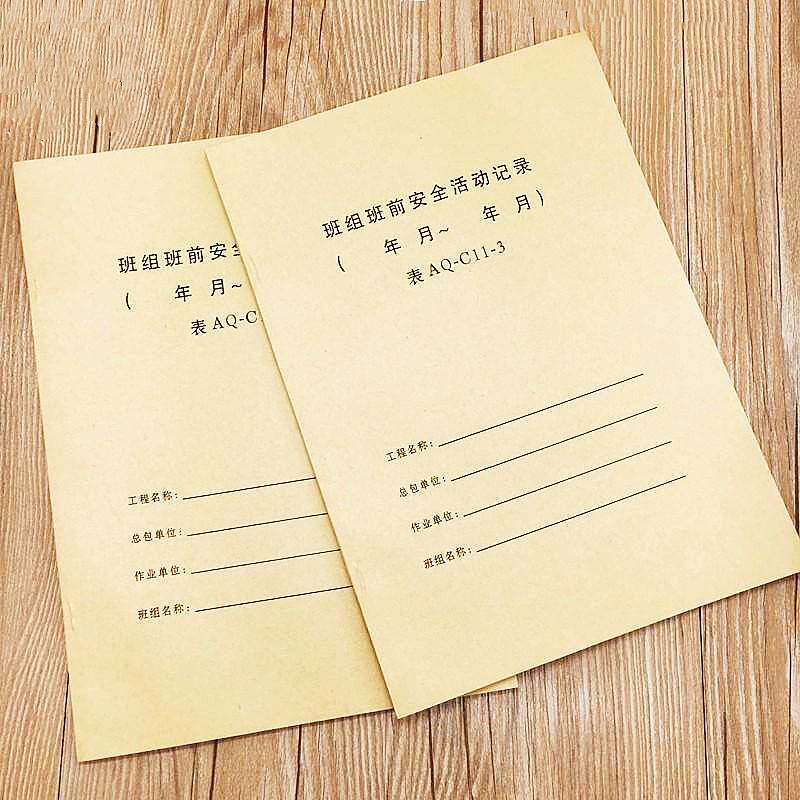 班组班前安全活动记录
(　　年　月~　　年　月)
表 AQ-C11-3
工程名称:
总包单位:
作业单位:
班组名称:
班组班前安
(　　年　月~
表 AQ-C
工程名称:
总包单位:
作业单位:
班组名称: